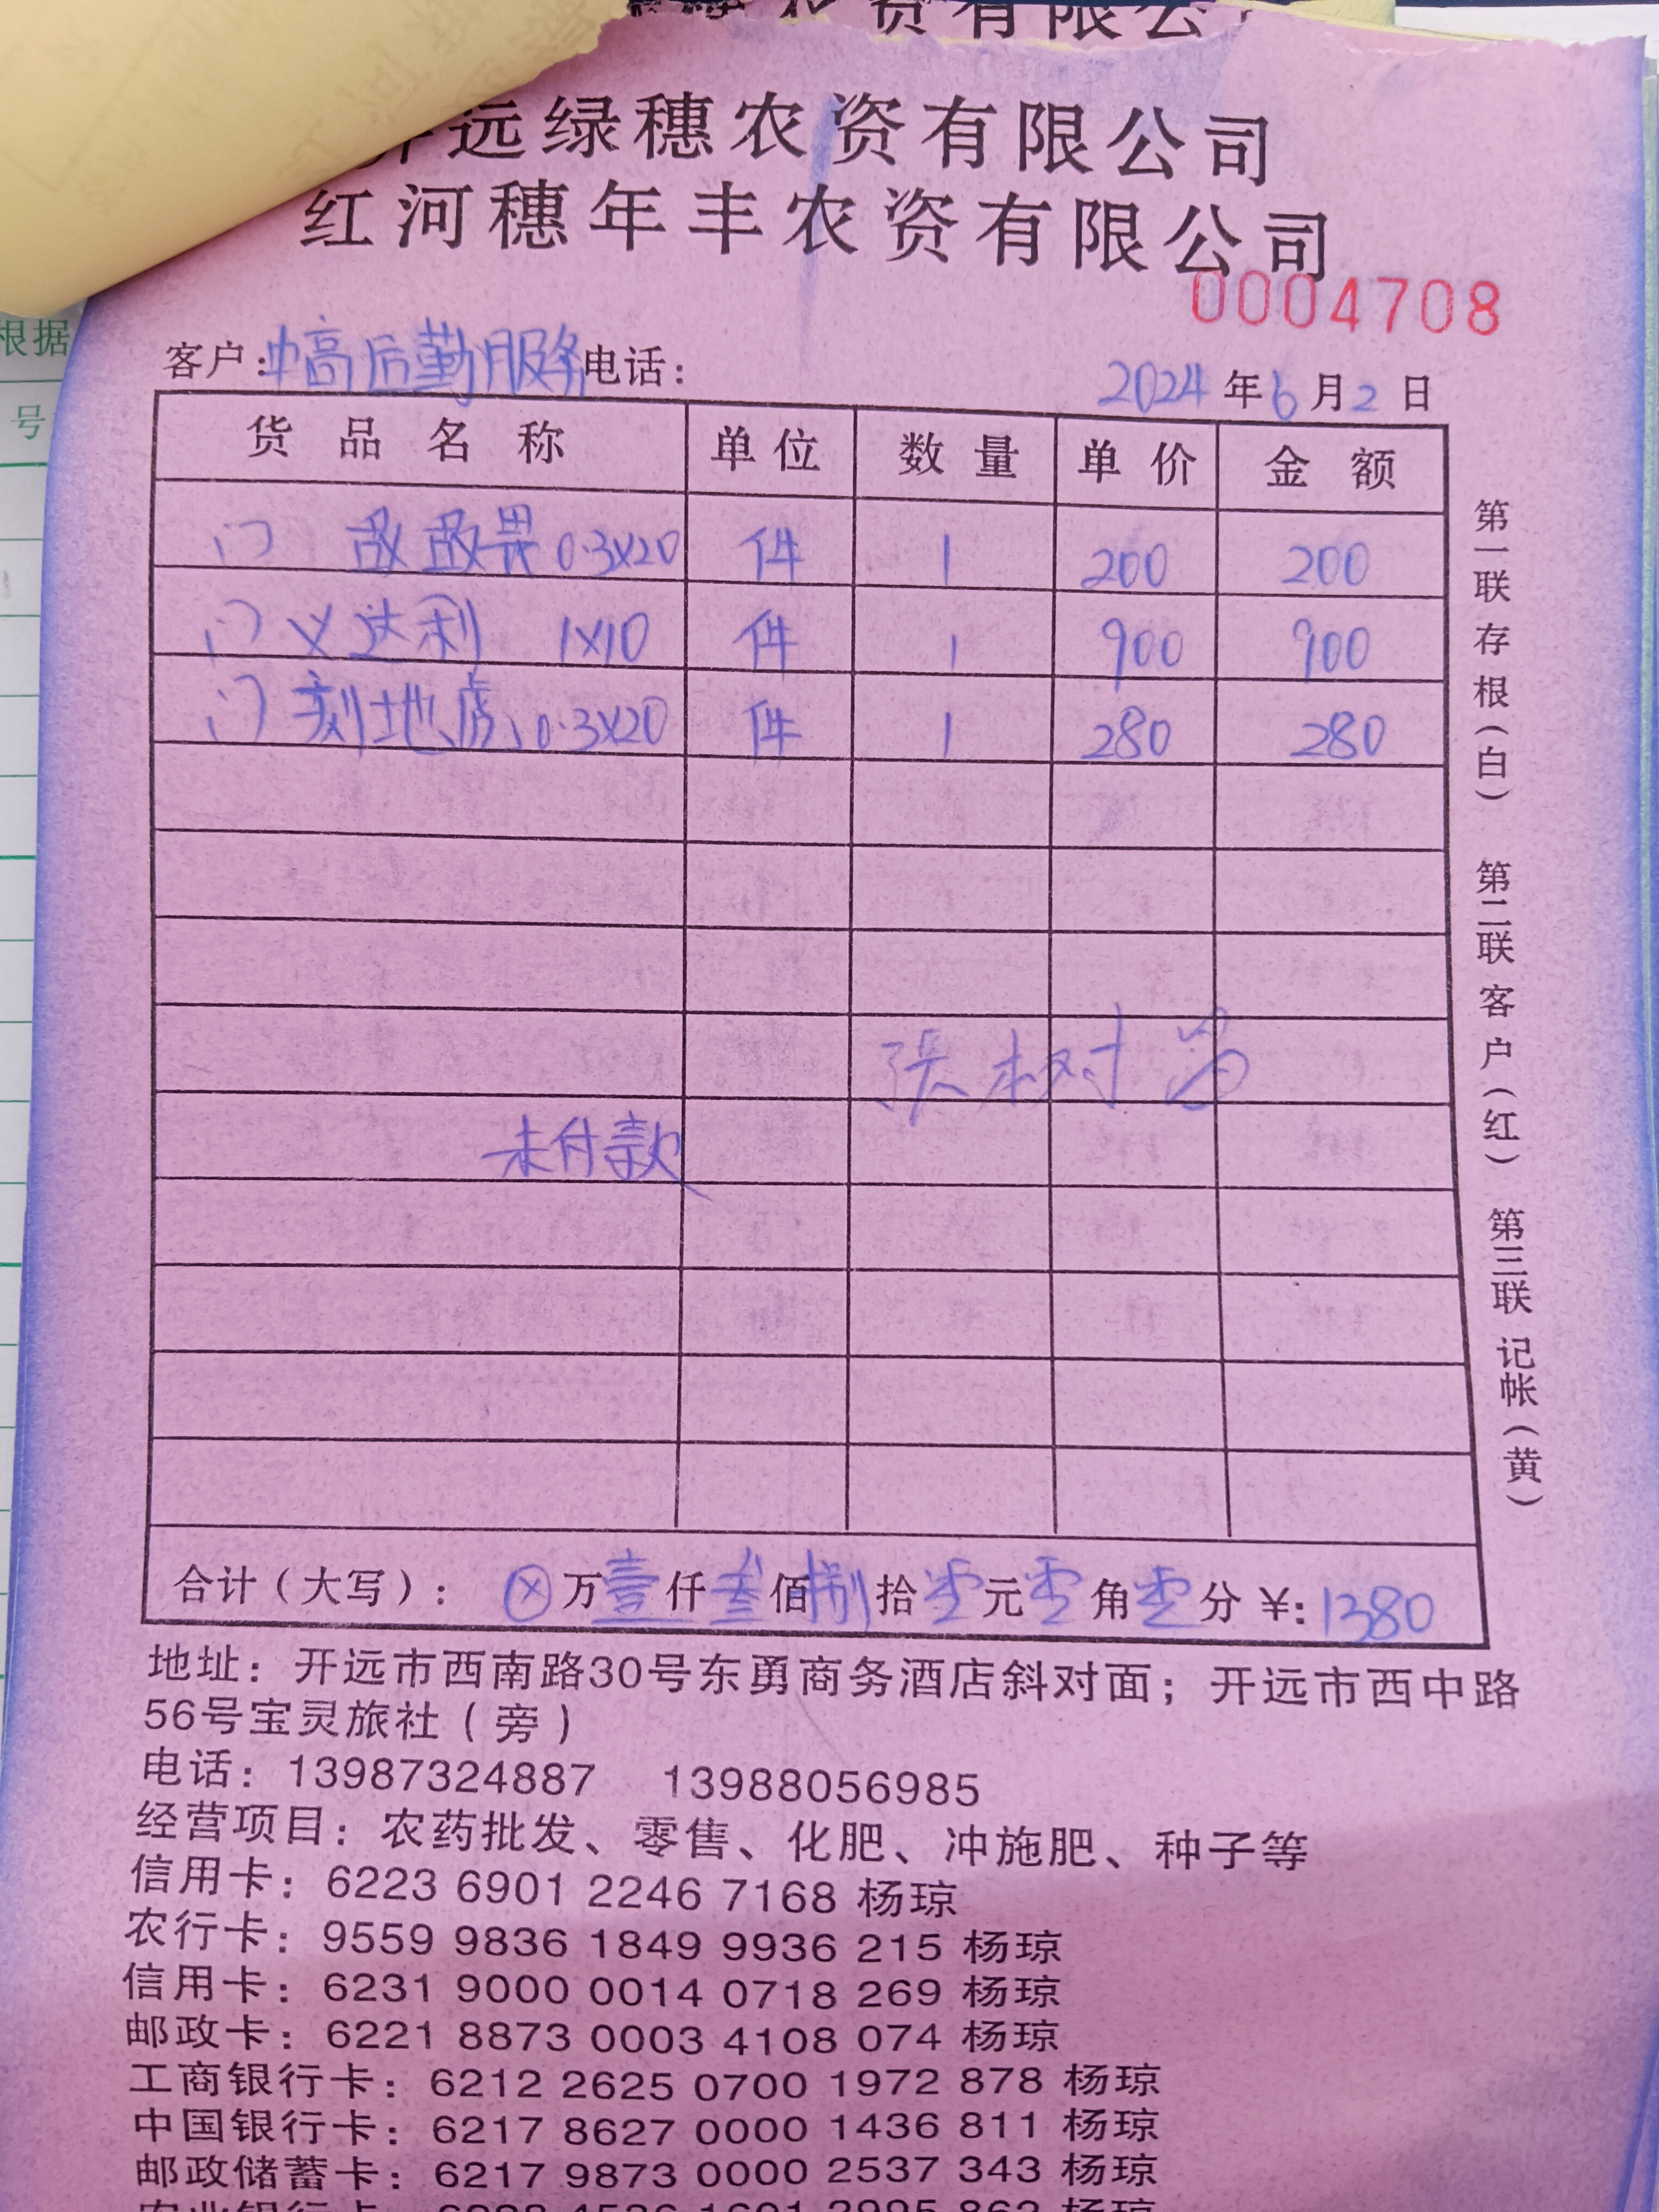 远绿穗农资有限公司
红河穗年丰农资有限公司
0004708
客户：中高后勤服务 电话：
2024年6月2日
货品名称 单位 数量 单价 金额
敌敌畏 0.3×20 件 1 200 200
义达利 1×10 件 1 900 900
地虎 0.3×20 件 1 280 280
张树
未付款
合计（大写）：⊗万壹仟叁佰捌拾零元零角零分 ¥：1380
第一联存根（白） 第二联客户（红） 第三联记帐（黄）
地址：开远市西南路30号东勇商务酒店斜对面；开远市西中路
56号宝灵旅社（旁）
电话：13987324887 13988056985
经营项目：农药批发、零售、化肥、冲施肥、种子等
信用卡：6223 6901 2246 7168 杨琼
农行卡：9559 9836 1849 9936 215 杨琼
信用卡：6231 9000 0014 0718 269 杨琼
邮政卡：6221 8873 0003 4108 074 杨琼
工商银行卡：6212 2625 0700 1972 878 杨琼
中国银行卡：6217 8627 0000 1436 811 杨琼
邮政储蓄卡：6217 9873 0000 2537 343 杨琼
根据
号